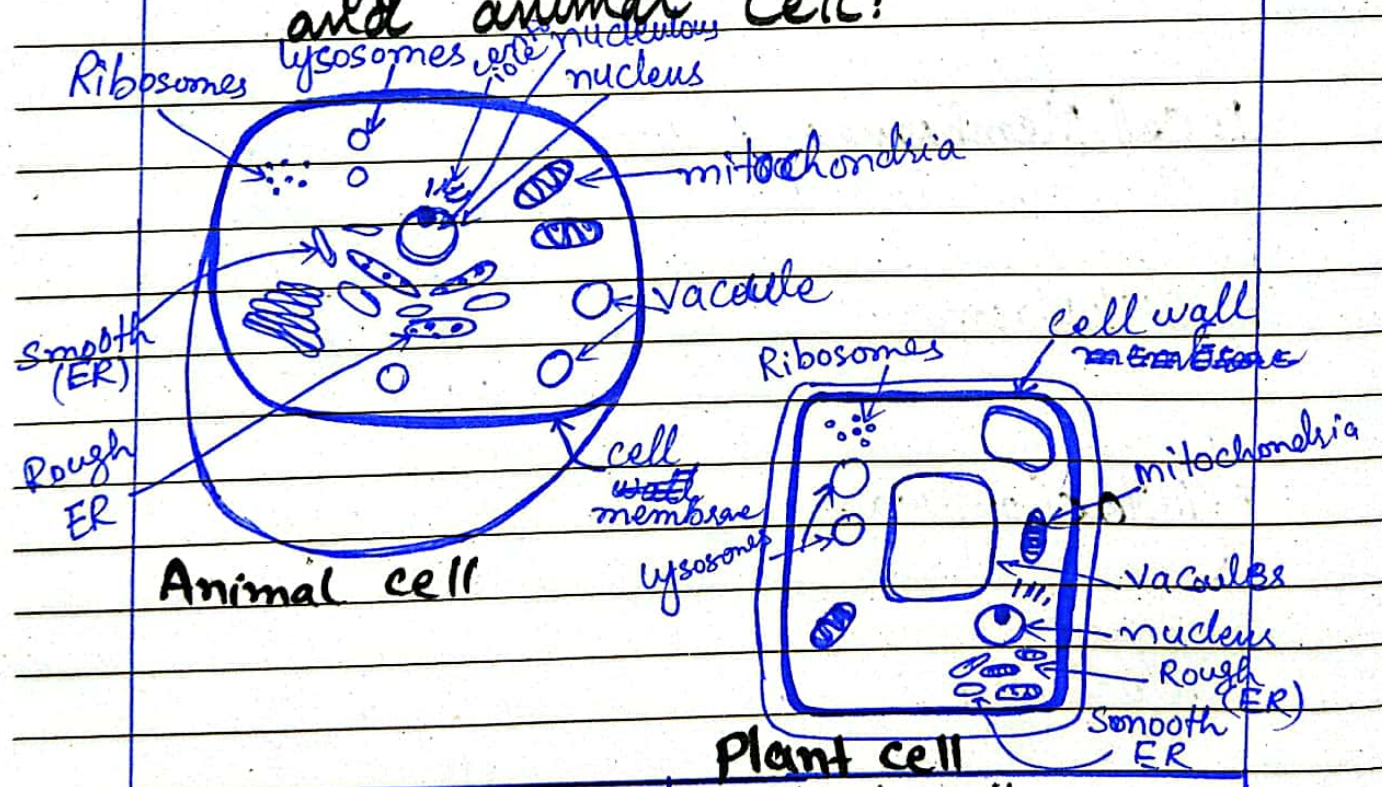 and animal cell?
lysosomes
nucleulous
Ribosomes
nucleus
mitochondria
vacoule
Smooth
(ER)
Rough
ER
cell
membrane
Animal cell
cell wall
Ribosomes
mitochondria
lysosomes
vacoules
nucleus
Rough
(ER)
Smooth
ER
Plant cell